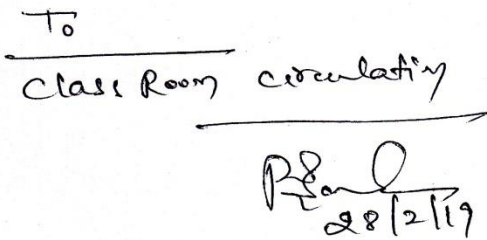 To
Class Room circulation
28/2/19